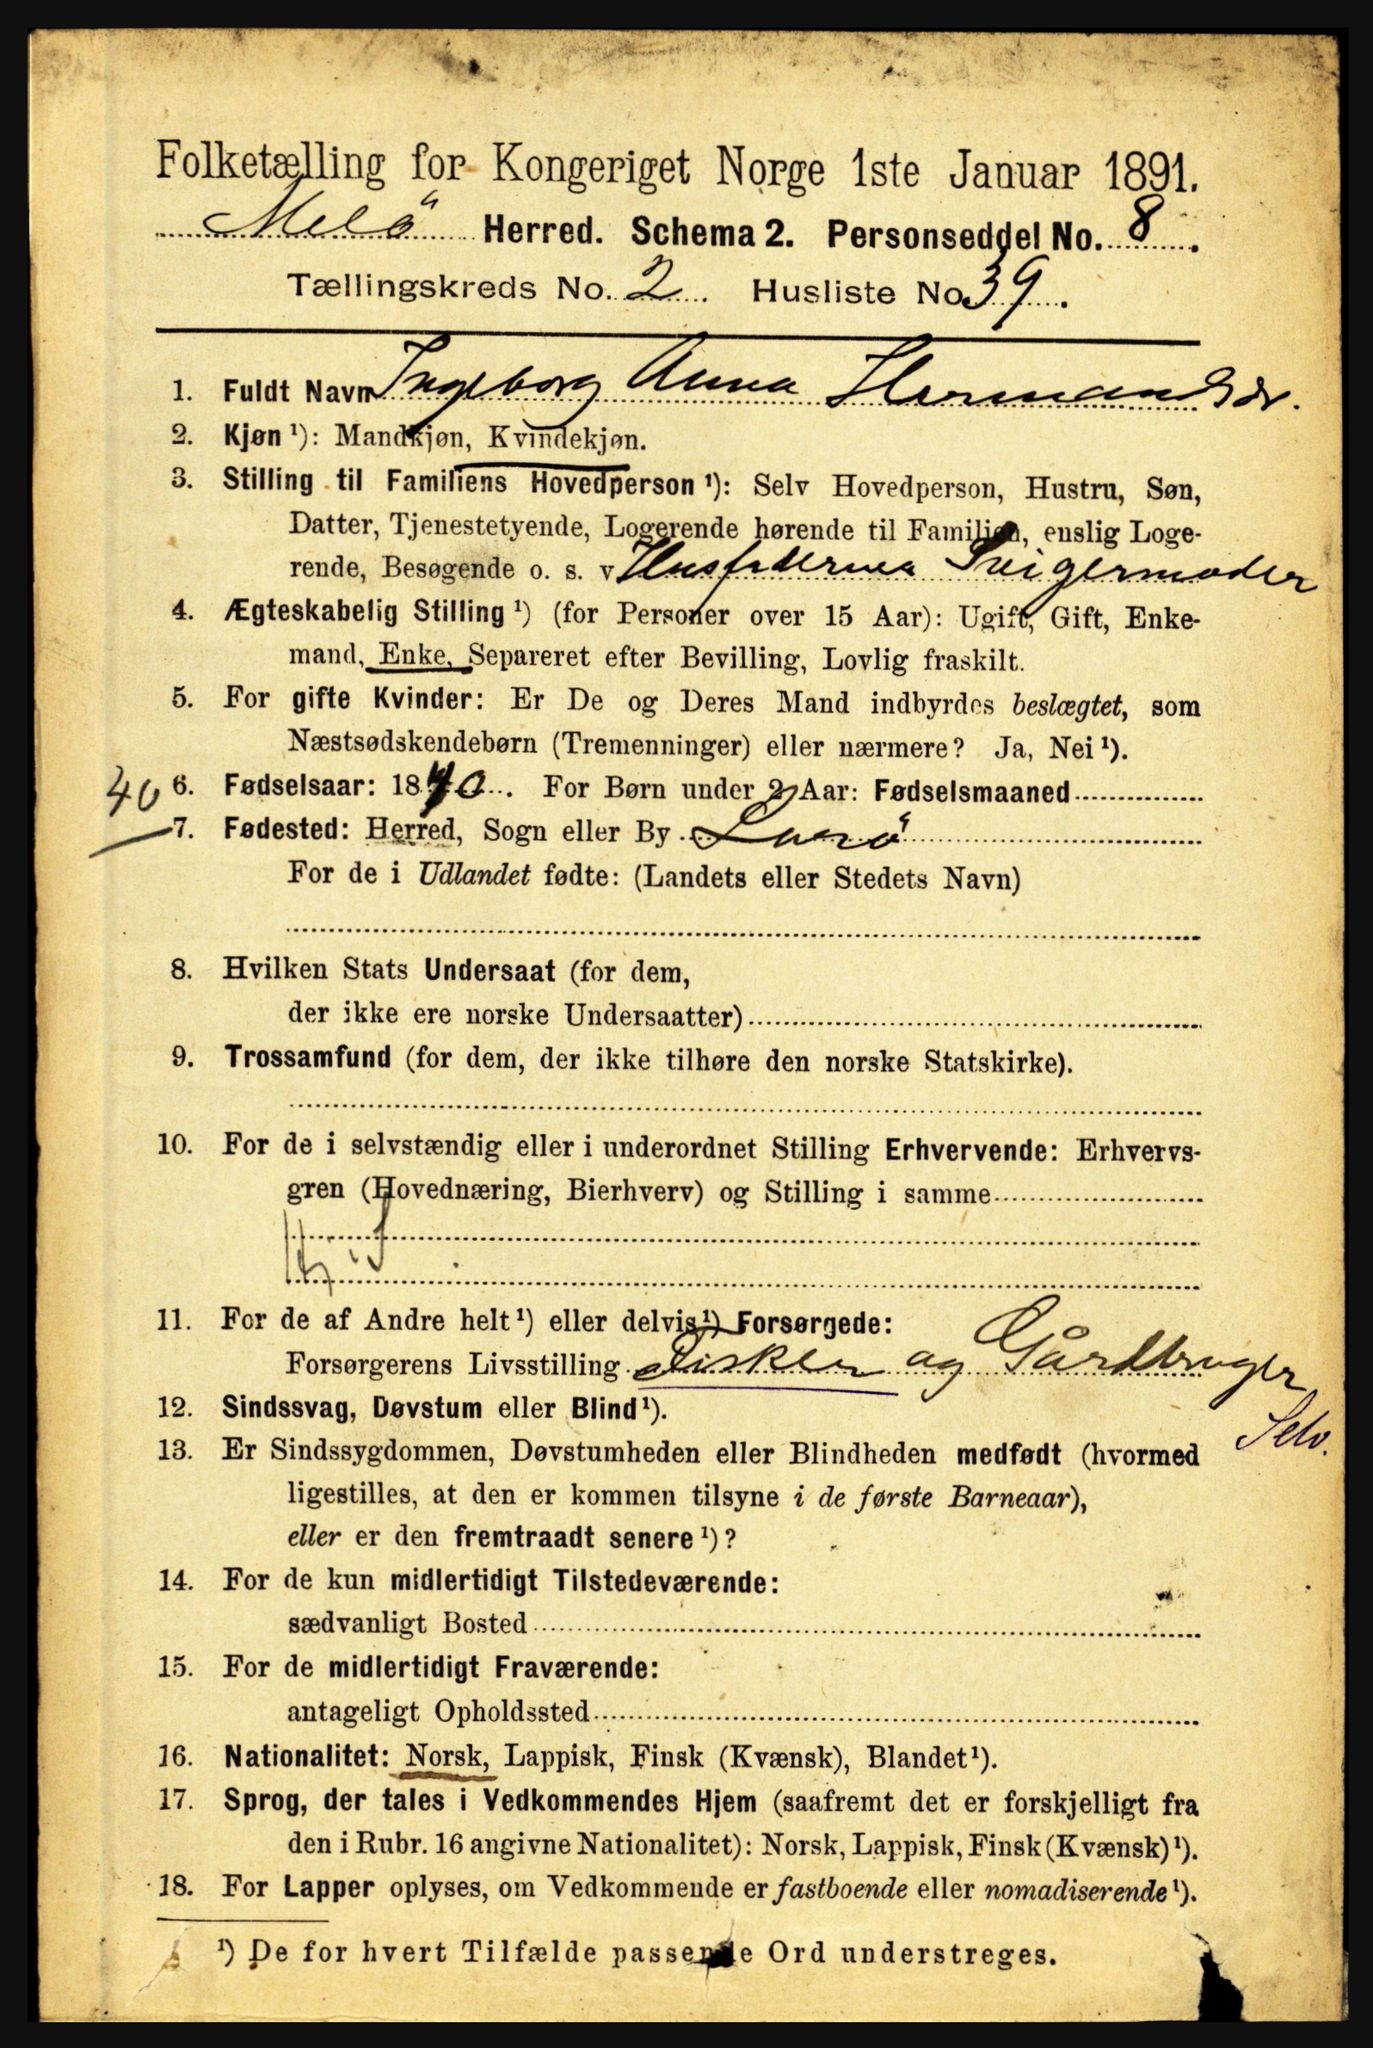 Folketælling for Kongeriget Norge 1ste Januar 1891.
Melö Herred. Schema 2. Personseddel No. 8.
Tællingskreds No. 2. Husliste No. 39.
1. Fuldt Navn Ingeborg Anna Hermandsdr.
2. Kjøn ¹): Mandkjøn, Kvindekjøn.
3. Stilling til Familiens Hovedperson ¹): Selv Hovedperson, Hustru, Søn,
Datter, Tjenestetyende, Logerende hørende til Familien, enslig Loge-
rende, Besøgende o. s. v Husfaderens Svigermoder
4. Ægteskabelig Stilling ¹) (for Personer over 15 Aar): Ugift, Gift, Enke-
mand, Enke, Separeret efter Bevilling, Lovlig fraskilt.
5. For gifte Kvinder: Er De og Deres Mand indbyrdes beslægtet, som
Næstsødskendebørn (Tremenninger) eller nærmere? Ja, Nei ¹).
40 6. Fødselsaar: 1840. For Børn under 2 Aar: Fødselsmaaned
7. Fødested: Herred, Sogn eller By Lurö
For de i Udlandet fødte: (Landets eller Stedets Navn)
8. Hvilken Stats Undersaat (for dem,
der ikke ere norske Undersaatter)
9. Trossamfund (for dem, der ikke tilhøre den norske Statskirke).
10. For de i selvstændig eller i underordnet Stilling Erhvervende: Erhvervs-
gren (Hovednæring, Bierhverv) og Stilling i samme
11. For de af Andre helt ¹) eller delvis ¹) Forsørgede:
Forsørgerens Livsstilling Fisker og Gårdbruger
Selv.
12. Sindssvag, Døvstum eller Blind ¹).
13. Er Sindssygdommen, Døvstumheden eller Blindheden medfødt (hvormed
ligestilles, at den er kommen tilsyne i de første Barneaar),
eller er den fremtraadt senere ¹)?
14. For de kun midlertidigt Tilstedeværende:
sædvanligt Bosted
15. For de midlertidigt Fraværende:
antageligt Opholdssted
16. Nationalitet: Norsk, Lappisk, Finsk (Kvænsk), Blandet ¹).
17. Sprog, der tales i Vedkommendes Hjem (saafremt det er forskjelligt fra
den i Rubr. 16 angivne Nationalitet): Norsk, Lappisk, Finsk (Kvænsk) ¹).
18. For Lapper oplyses, om Vedkommende er fastboende eller nomadiserende ¹).
¹) De for hvert Tilfælde passende Ord understreges.